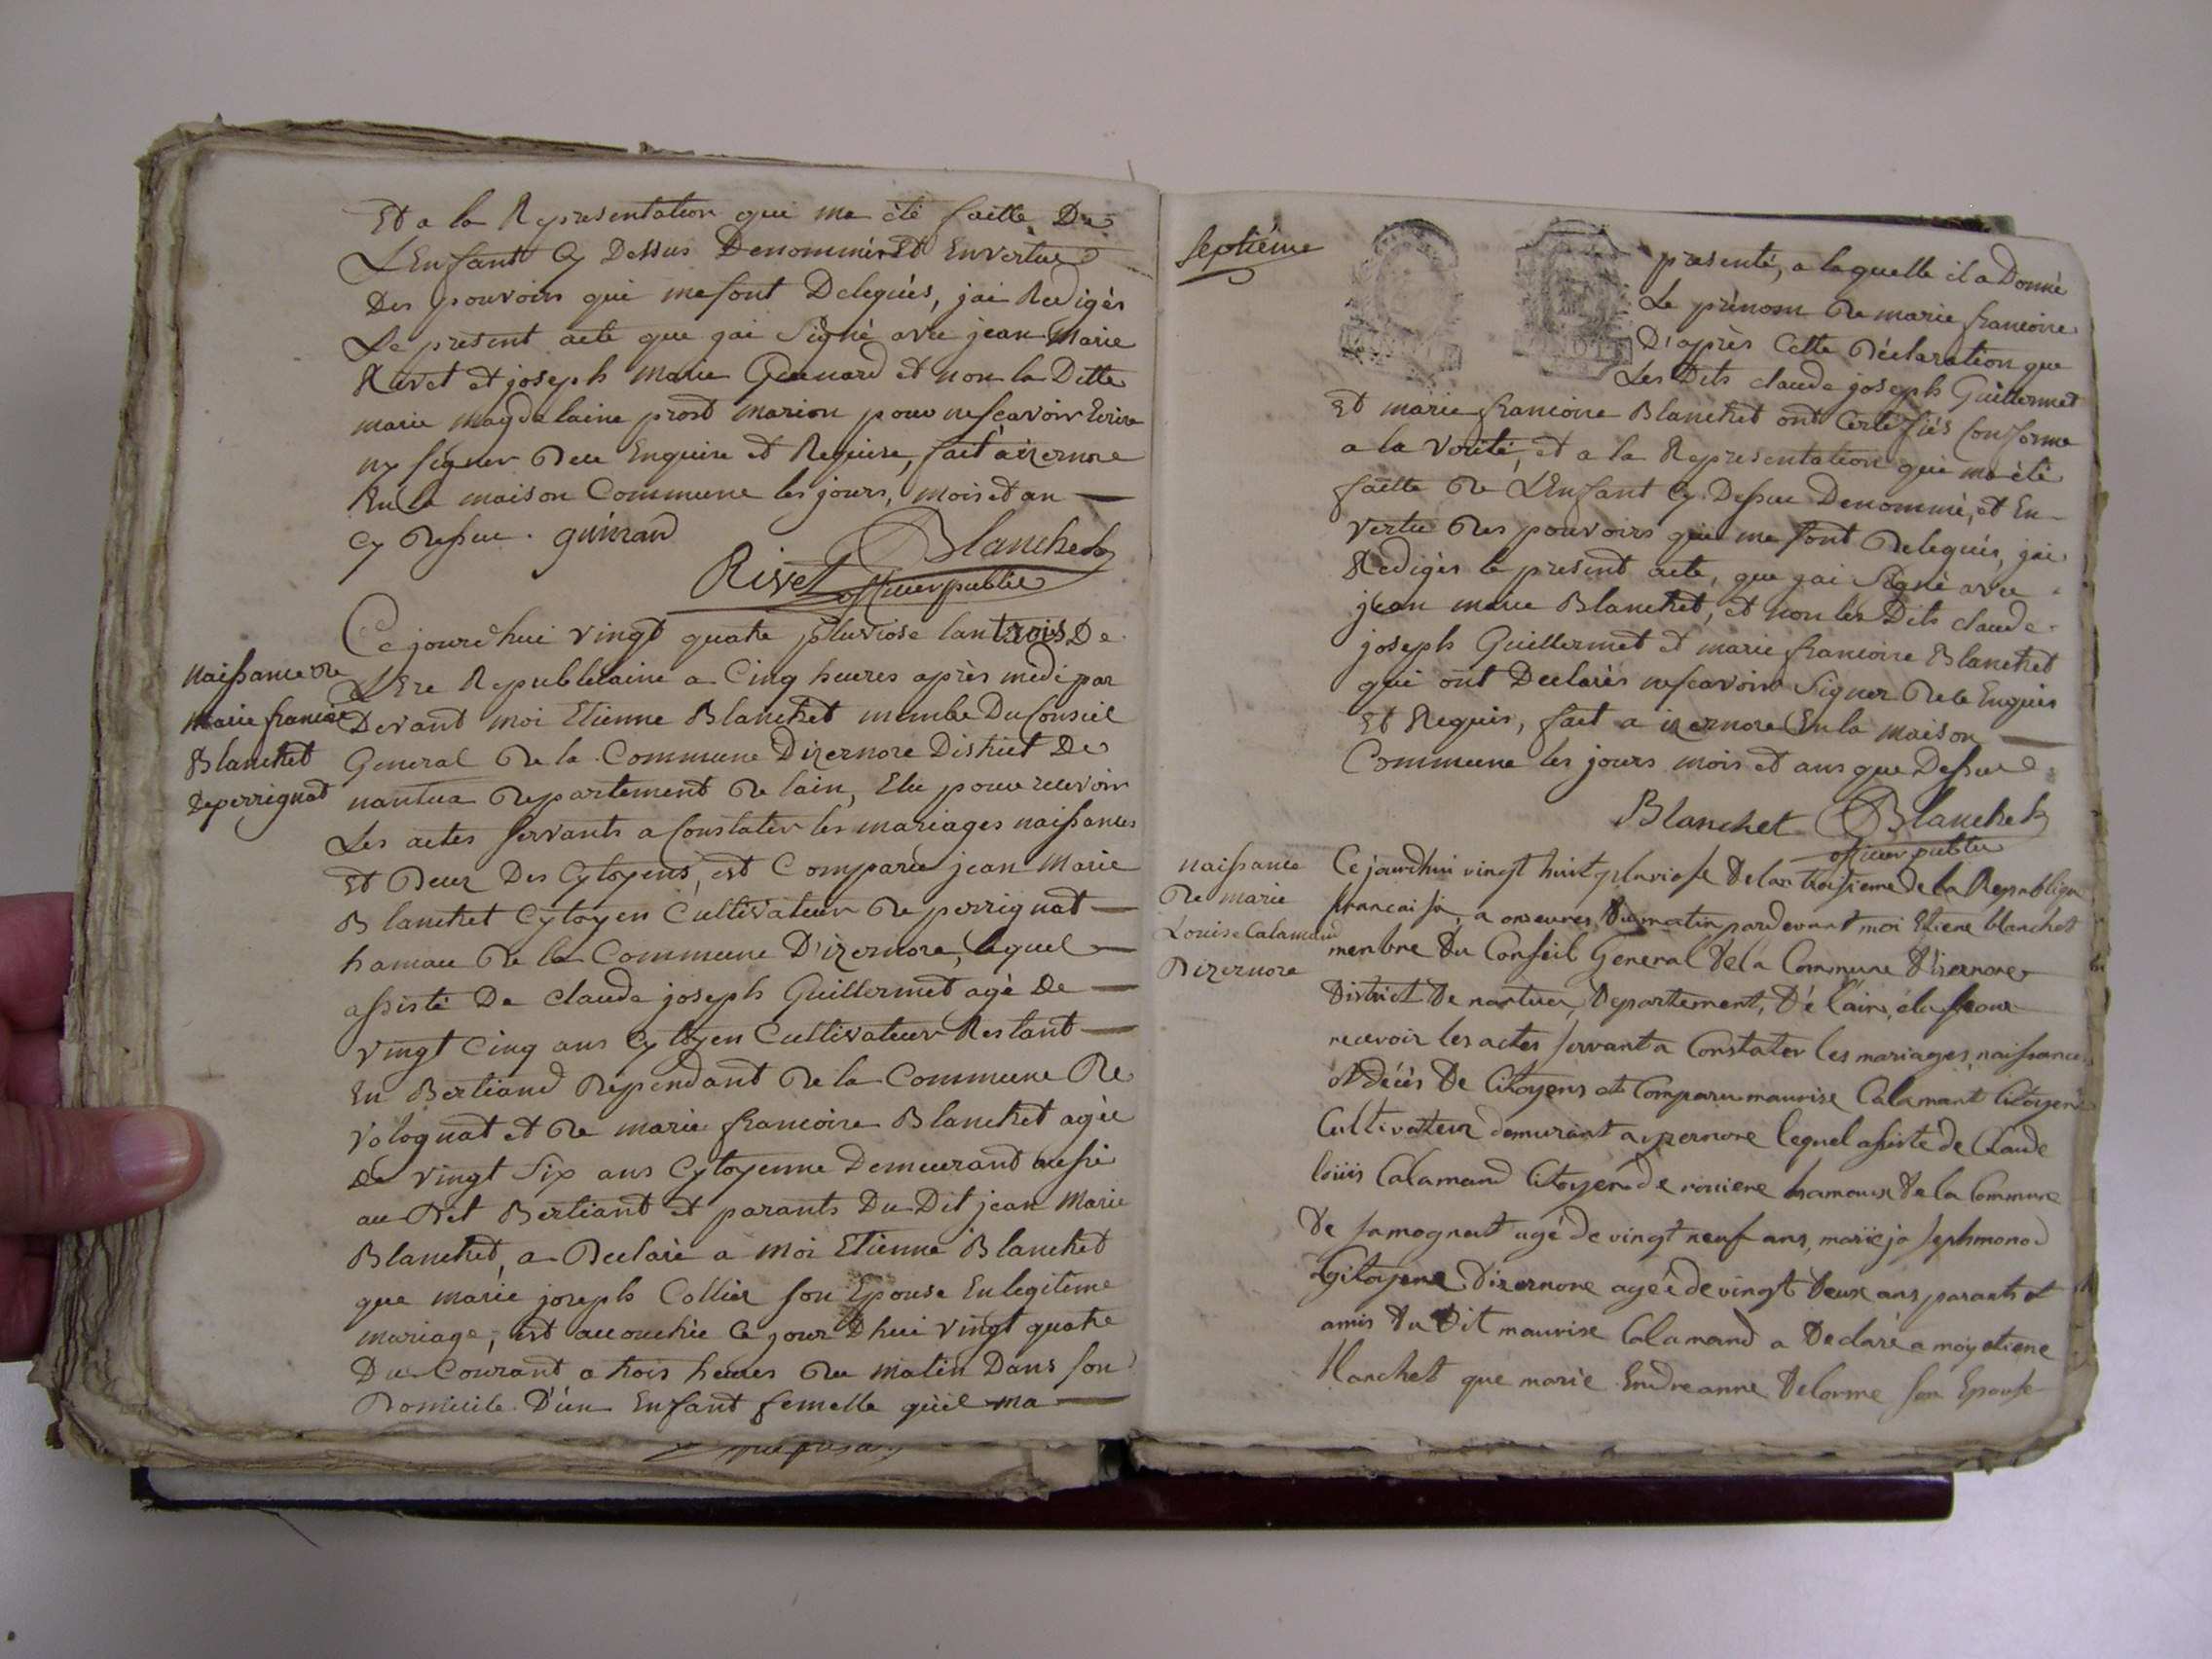 Et a la Representation qui ma été faitte De
L'Enfant Cy Dessus Denommé Et En vertue
Des pouvoirs qui me sont Delegués, jai Redigés
Le present acte que jai Signé avec jean Marie
Rivet et joseph Marie Guinard et non la Ditte
marie magdelaine prost marion pour ne sçavoir Ecrire
ny signer De ce Enquise et Requise, fait a izernore
En la maison Commune les jours, mois et an
Cy Dessus. guinrand
Blanchet
Rivet officier public
Ce jourd'hui vingt quatre pluviose lan trois De
naissance de
marie françoise
Blanchet
De perrignat
L'Ere Republicaine a Cinq heures après midi par
Devant moi Etienne Blanchet membe Du Conseil
General De la Commune Dizernore District De
nantua Departement De lain, Elu pour recevoir
Les actes servants a Constater les mariages naissances
Et Decez Des Cytoyens, est Comparu jean Marie
Blanchet Cytoyen Cultivateur De perrignat
hamau De la Commune D'izernore, lequel
assisté De claude joseph Guillermet agé De
vingt Cinq ans Cytoyen Cultivateur Restant
En Bertiand Dependant De la Commune De
volognat et De marie francoise Blanchet agée
De vingt Six ans Cytoyenne Demeurand aussi
au Dit Bertiant et parants Du Dit jean Marie
Blanchet, a Declaré a moi Etienne Blanchet
que marie joseph Collier son Epouse En legitime
mariage, est accouchée Ce jour Dhui vingt quatre
Du Courant a trois heures Du matin Dans son
Domicile D'un Enfant femelle qu'il ma
septiéme
presenté, a laquelle il a Donné
Le prénom De marie francoise
D'après Cette Déclaration que
Les Dits claude joseph Guillermet
Et marie francoise Blanchet ont Certifiés Conforme
a la verité, et a la Representation qui ma été
faitte De L'Enfant Cy Dessus Denommé, et En
vertu Des pouvoirs qui me sont Delegués, jai
Redigés le present acte, que jai Signé avec
jean marie Blanchet, et non les Dits claude
joseph Guillermet et marie francoise Blanchet
qui ont Declarés ne sçavoir Signer De ce Enquis
Et Requis, fait a izernore En la maison
Commune les jours mois et ans que Dessus
Blanchet Blanchet
officier public
naissance
De marie
Louise Calamand
Dizernore
Ce jourdhui vingt huit pluviose de lan troisieme de la Republique
francaise, a onseures du matin pardevant moi Etiene blanchet
menbre du Conseil General de la Commune d'isernore
District de nantua, Departement, de l'ain, élu pour
recevoir les actes servant a Constater les mariages, naissances
et décès de Citoyens et Comparu maurise Calamant Citoyen
Cultivateur demurant a yzernore lequel assiste de Claude
louis Calamand Citoyen de riviere hamaux de la Commune
de samognat agé de vingt neuf ans, marie josephmonod
Citoyene Dizernore agée de vingt deux ans parants et
amis du dit maurise Calamand a declaré a moy etiene
blanchet que marie Endreanne delorme son Epouse